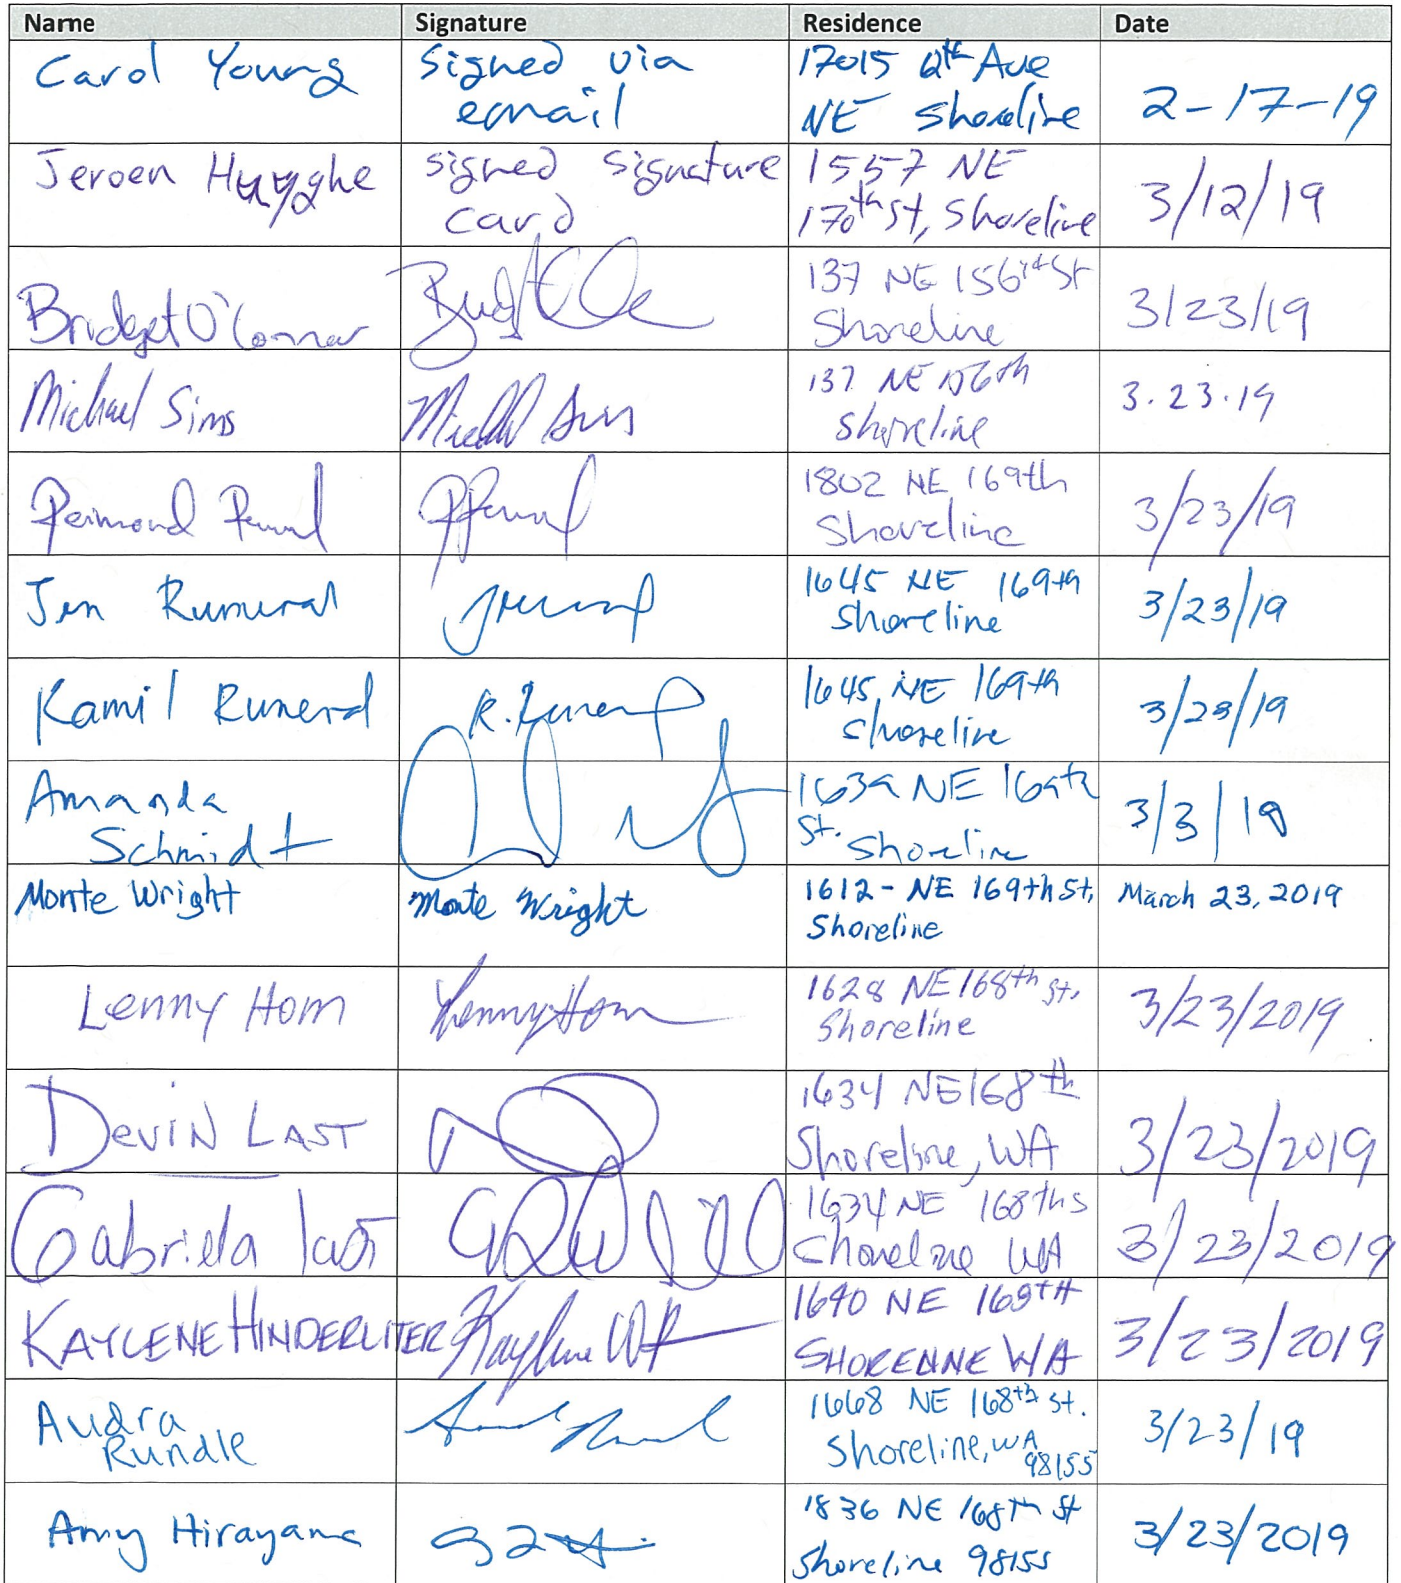 Name Signature Residence Date
Carol Young Signed via email 17015 6th Ave NE Shoreline 2-17-19
Jeroen Huyghe signed signature card 1557 NE 170th St, Shoreline 3/12/19
Bridget O'Connor 137 NE 156th St Shoreline 3/23/19
Michael Sims 137 NE 156th Shoreline 3.23.19
1802 NE 169th Shoreline 3/23/19
Jen 1645 NE 169th Shoreline 3/23/19
Kamil 1645 NE 169th Shoreline 3/23/19
Amanda Schmidt 1639 NE 169th St. Shoreline 3/3/19
Monte Wright Monte Wright 1612 - NE 169th St, Shoreline March 23, 2019
Lenny Hom Lenny Hom 1628 NE 168th St, Shoreline 3/23/2019
Devin Last 1634 NE 168th Shoreline, WA 3/23/2019
Gabriela Last 1634 NE 168th S Shoreline WA 3/23/2019
KAYLENE HINDERLITER 1640 NE 168TH SHORELINE WA 3/23/2019
Audra Rundle 1668 NE 168th St. Shoreline, WA 98155 3/23/19
Amy Hirayama 1836 NE 168th St Shoreline 98155 3/23/2019